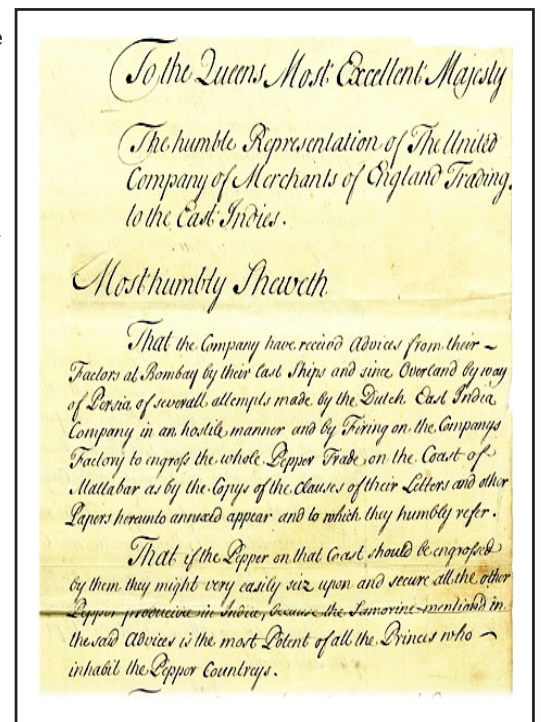 To the Queens Most Excellent Majesty
The humble Representation of The United
Company of Merchants of England Trading
to the East Indies.
Most humbly Sheweth
That the Company have receivd Advices from their
Factors at Bombay by their last Ships and since Overland by way
of Persia of severall attempts made by the Dutch East India
Company in an hostile manner and by Firing on the Companys
Factory to engross the whole Pepper Trade on the Coast of
Mallabar as by the Copys of the Clauses of their Letters and other
Papers hereunto annexed appear and to which they humbly refer.
That if the Pepper on that Coast should be engrossed
by them they might very easily seiz upon and secure all the other
Pepper producive in India, because the Samorine mentioned in
the said Advices is the most Potent of all the Princes who
inhabit the Pepper Countreys.